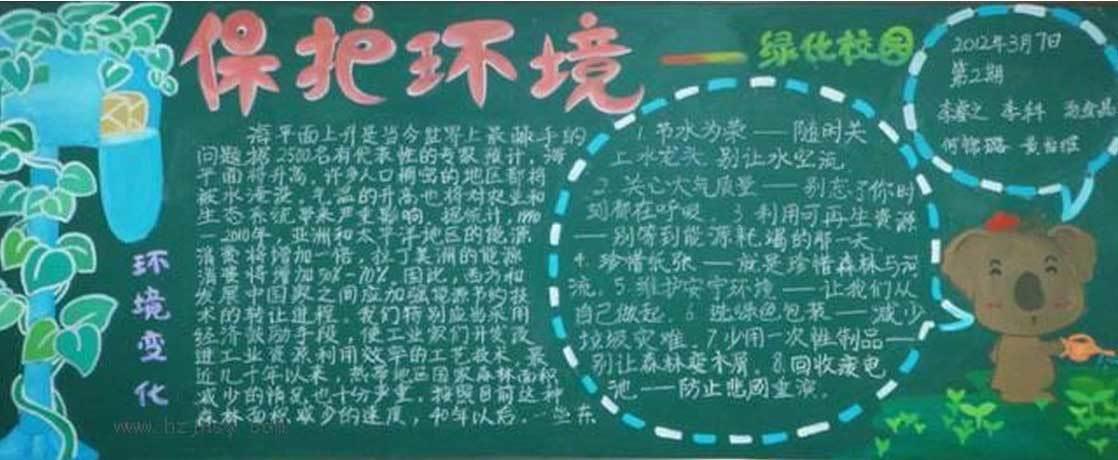 保护环境
绿化校园
2012年3月7日
第2期
海平面上升是当今世界上最棘手的
问题据2500名有代表性的专家推计,海
平面将升高,许多人口稠密的地区都将
被水淹没。气温的升高也将对农业和
生态系统带来严重影响。据统计,1990
—2010年,亚洲和太平洋地区的能源
消费将增加一倍,拉丁美洲的能源
消费将增加50%-70%。因此,西方和
发展中国家之间应加强能源节约技
术的转让进程。我们特别应当采用
经济鼓励手段,使工业家们开发改
进工业资源利用效率的工艺技术。最
近几十年以来,热带地区国家森林面积
减少的情况也十分严重。按照目前这种
森林面积减少的速度,40年以后,一些东
环境变化
1.节水为荣——随时关
上水龙头,别让水空流
2.关心大气质量——别忘了你时
刻都在呼吸。3.利用可再生资源
——别等到能源耗竭的那一天。
4.珍惜纸张——就是珍惜森林与河
流。5.维护安宁环境——让我们从
自己做起。6.选绿色包装——减少
垃圾灾难。7.少用一次性制品——
别让森林变木屑。8.回收废电
池——防止悲剧重演。